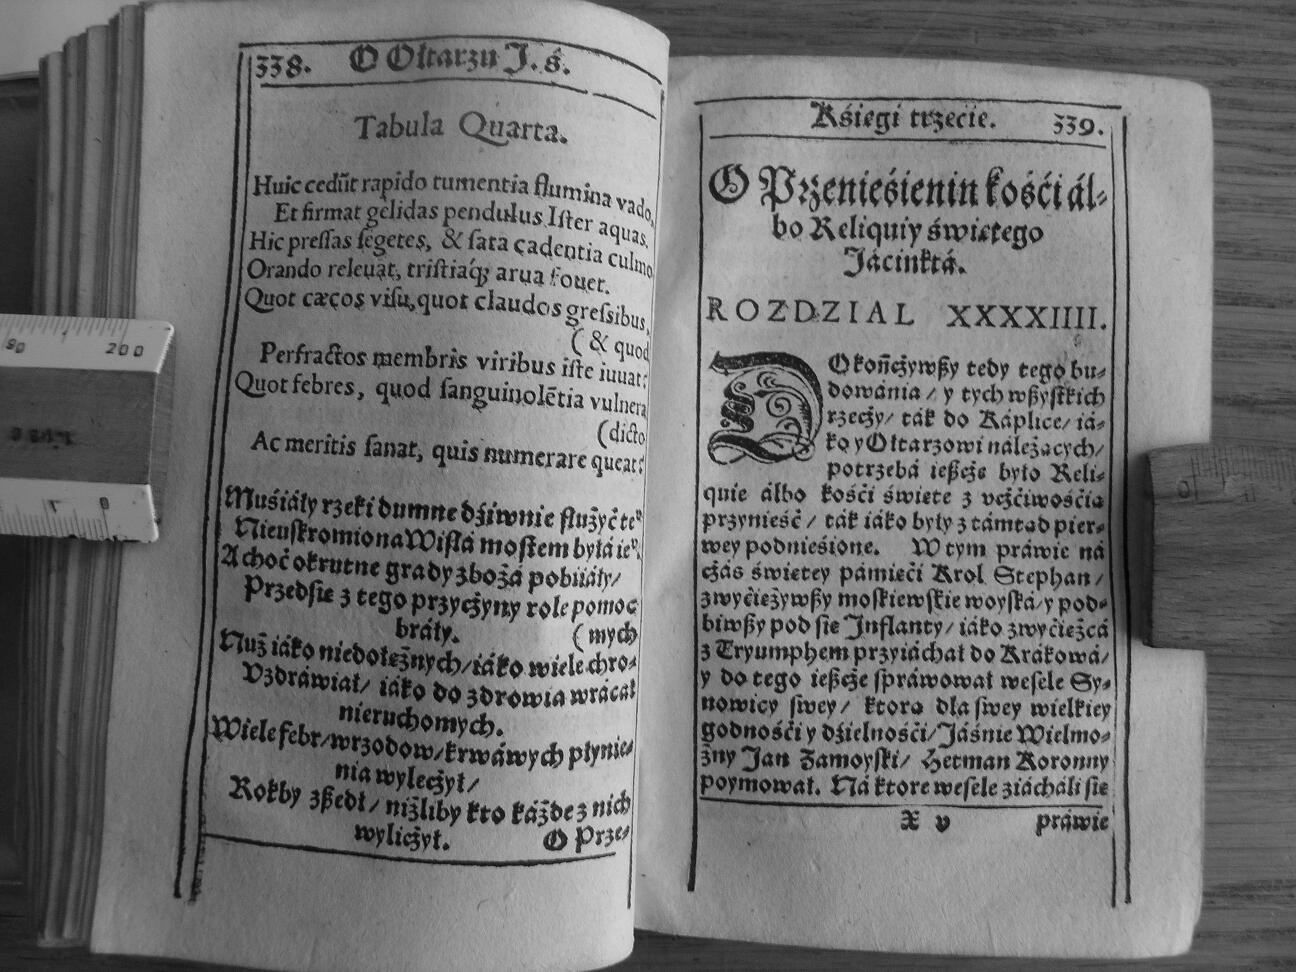 338. O Ołtarzu J. ś.
Tabula Quarta.
Huic cedūt rapido tumentia flumina vado,
Et firmat gelidas pendulus Iſter aquas.
Hic preſſas ſegetes, & ſata cadentia culmo
Orando releuat, triſtiaq́; arua fouet.
Quot cæcos viſu, quot claudos greſsibus,
(& quod
Perfractos membris viribus iſte iuuat:
Quot febres, quod ſanguinolētia vulnera
(dicto
Ac meritis ſanat, quis numerare queat:
Muśiáły rzeki dumne dźiwnie ſłużyć teᵘ
Nieuſkromiona Wiſłá moſtem byłá ieᵘ.
A choć okrutne grady zbożá pobiiáły/
Przedſie z tego przyczyny role pomoc
bráły. (mych
Nuż iáko niedołężnych/ iáko wiele chro⸗
Vzdráwiał/ iáko do zdrowia wrácał
nieruchomych.
Wiele febr/ wrzodow/ krwáwych płynie⸗
nia wyleczył/
Rokby zßedł/ niżliby kto káżde z nich
wyliczył. O Prze⸗
Kśięgi trzećie. 339.
O Przenieśieniu kośći ál⸗
bo Reliquiy świętego
Jácinktá.
ROZDZIAL XXXXIIII.
DOkończywßy tedy tego bu⸗
dowánia/ y tych wßyſtkich
rzeczy/ ták do Káplice/ iá⸗
ko y Ołtarzowi należących/
potrzebá ießcze było Reli⸗
quie álbo kośći święte z vczćiwośćią
przynieść/ ták iáko były z támtąd pier⸗
wey podnieśione. W tym práwie ná
czás świętey pámięći Krol Stephan/
zwyćiężywßy moſkiewſkie woyſká/ y pod⸗
biwßy pod ſię Inflanty/ iáko zwyćiężcá
z Tryumphem przyiáchał do Krákowá/
y do tego ießcze ſpráwował weſele Sy⸗
nowicy ſwey/ ktorą dla ſwey wielkiey
godnośći y dźielnośći/ Jáśnie Wielmo⸗
żny Jan Zamoyſki/ Hetman Koronny
poymował. Ná ktore weſele ziácháli ſię
X v práwie